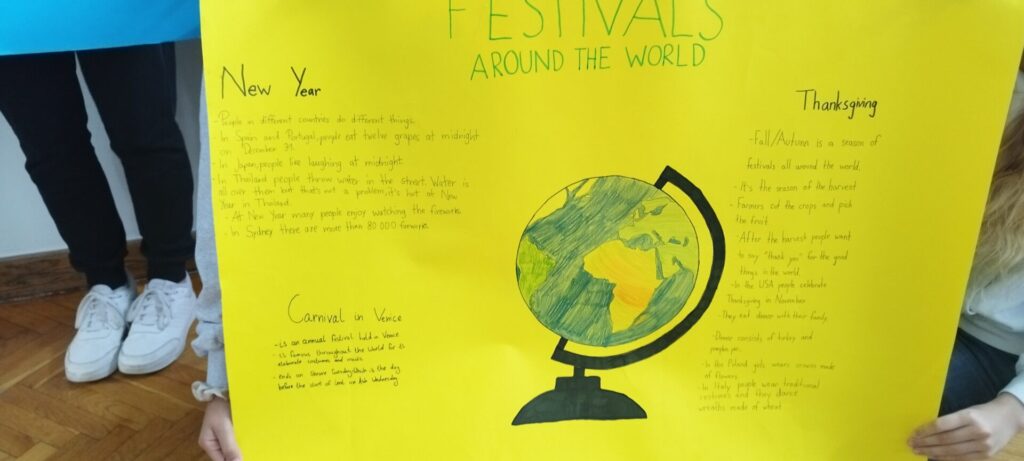 FESTIVALS
AROUND THE WORLD
New Year
- People in different countries do different things.
- In Spain and Portugal, people eat twelve grapes at midnight
on December 31.
- In Japan, people like laughing at midnight
- In Thailand people throw water in the street. Water is
all over them but that's not a problem, it's hot at New
Year in Thailand.
- At New Year many people enjoy watching the fireworks
- In Sydney there are more than 80 000 fireworks.
Carnival in Venice
- is an annual festival held in Venice
- is famous throughout the world for its
elaborate costumes and masks
- ends on Shrove Tuesday which is the day
before the start of Lent on Ash Wednesday
Thanksgiving
- Fall/Autumn is a season of
festivals all around the world.
- It's the season of the harvest
- Farmers cut the crops and pick
the fruit.
- After the harvest people want
to say "thank you" for the good
things in the world.
- In the USA people celebrate
Thanksgiving in November
- They eat dinner with their family
- Dinner consists of turkey and
pumpkin pie.
- In the Poland girls wears crowns made
of flowers.
- In Italy people wear traditional
costumes and they dance
wreaths made of wheat